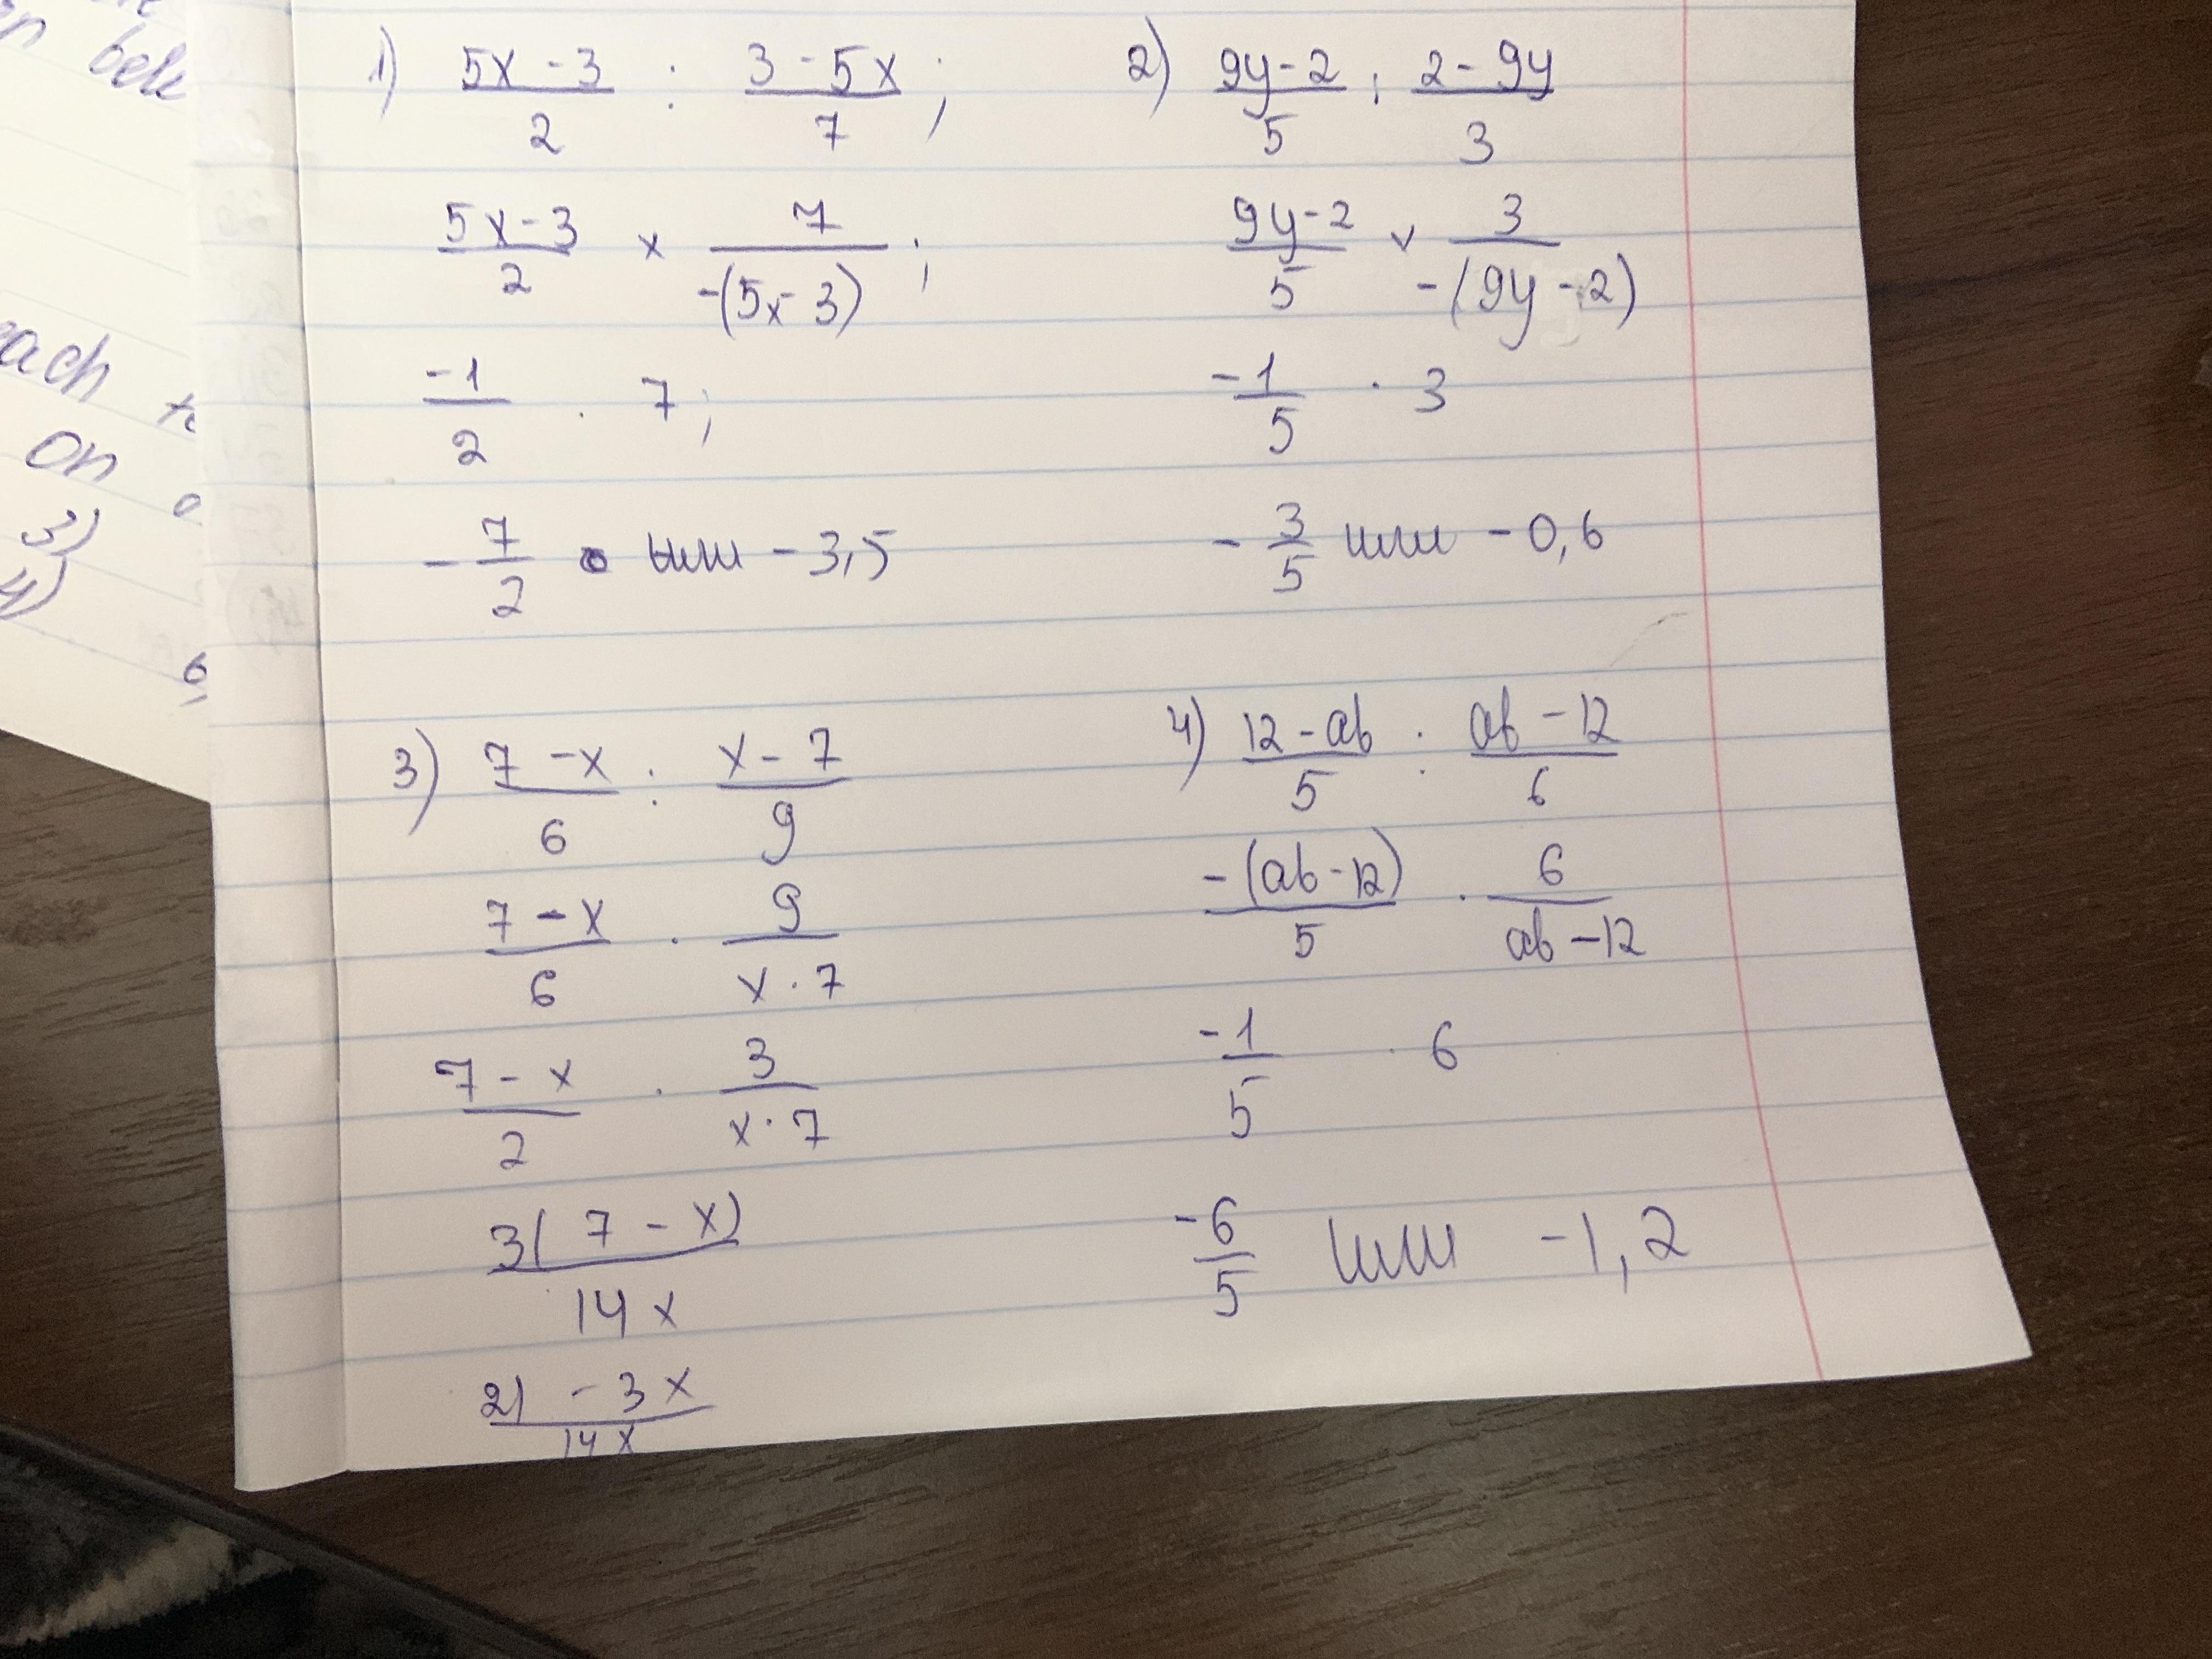 n bele
each t
on
3)
4)
6
1) (5x - 3)/2 : (3 - 5x)/7 ;
(5x - 3)/2 × 7/(-(5x - 3)) ;
-1/2 · 7 ;
- 7/2 или - 3,5
2) (9y - 2)/5 : (2 - 9y)/3
(9y - 2)/5 × 3/(-(9y - 2))
-1/5 · 3
- 3/5 или - 0,6
3) (7 - x)/6 : (x - 7)/9
(7 - x)/6 · 9/(x · 7)
(7 - x)/2 · 3/(x · 7)
3(7 - x)/14x
(21 - 3x)/14x
4) (12 - ab)/5 : (ab - 12)/6
-(ab - 12)/5 · 6/(ab - 12)
-1/5 · 6
-6/5 или -1,2